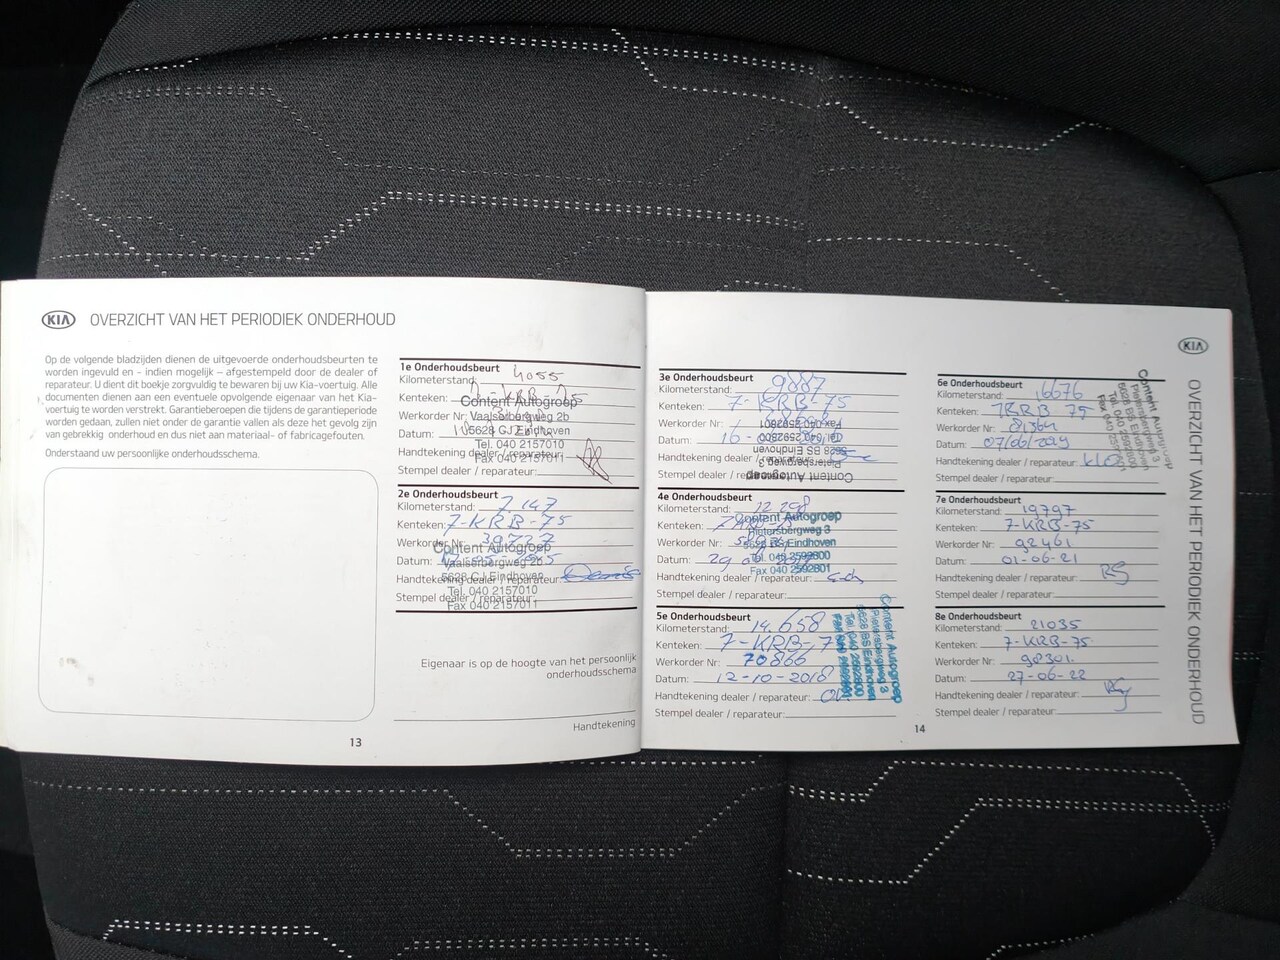 KIA OVERZICHT VAN HET PERIODIEK ONDERHOUD
Op de volgende bladzijden dienen de uitgevoerde onderhoudsbeurten te
worden ingevuld en - indien mogelijk – afgestempeld door de dealer of
reparateur. U dient dit boekje zorgvuldig te bewaren bij uw Kia-voertuig. Alle
documenten dienen aan een eventuele opvolgende eigenaar van het Kia-
voertuig te worden verstrekt. Garantieberoepen die tijdens de garantieperiode
worden gedaan, zullen niet onder de garantie vallen als deze het gevolg zijn
van gebrekkig onderhoud en dus niet aan materiaal- of fabricagefouten.
Onderstaand uw persoonlijke onderhoudsschema.
1e Onderhoudsbeurt
Kilometerstand: 4055
Kenteken:
Content Autogroep
Werkorder Nr: Vaalserbergweg 2b
Datum: 5628 CJ Eindhoven
Tel. 040 2157010
Handtekening dealer / reparateur:
Fax 040 2157011
Stempel dealer / reparateur:
2e Onderhoudsbeurt
Kilometerstand: 7.147
Kenteken: 7-KRB-75
Werkorder Nr: 39727
Content Autogroep
Datum: Vaalserbergweg 2b
5628 CJ Eindhoven
Handtekening dealer / reparateur: Dennis
Tel. 040 2157010
Stempel dealer / reparateur:
Fax 040 2157011
Eigenaar is op de hoogte van het persoonlijk
onderhoudsschema
Handtekening
13
3e Onderhoudsbeurt
Kilometerstand: 9887
Kenteken: 7-KRB-75
Werkorder Nr:
Fax 040 2592801
Datum: 16-
Tel. 040 2592800
5628 BS Eindhoven
Handtekening dealer / reparateur:
Pietersbergweg 3
Stempel dealer / reparateur:
Content Autogroep
4e Onderhoudsbeurt
Kilometerstand: 12.298
Kenteken:
Content Autogroep
Pietersbergweg 3
Werkorder Nr:
5628 BS Eindhoven
Datum: 29
Tel. 040 2592800
Fax 040 2592801
Handtekening dealer / reparateur:
Stempel dealer / reparateur:
5e Onderhoudsbeurt
Kilometerstand: 14.658
Kenteken: 7-KRB-75
Werkorder Nr: 70866
Datum: 12-10-2018
Handtekening dealer / reparateur:
Stempel dealer / reparateur:
Content Autogroep
Pietersbergweg 3
5628 BS Eindhoven
Tel. 040 2592800
Fax 040 2592801
14
6e Onderhoudsbeurt
Kilometerstand: 16676
Kenteken: 7KRB 75
Werkorder Nr: 81364
Datum: 07/06/2019
Handtekening dealer / reparateur:
Stempel dealer / reparateur:
Content Autogroep
Pietersbergweg 3
5628 BS Eindhoven
Tel. 040 2592800
7e Onderhoudsbeurt
Kilometerstand: 19797
Kenteken: 7-KRB-75
Werkorder Nr: 92461
Datum: 01-06-21
Handtekening dealer / reparateur:
Stempel dealer / reparateur:
8e Onderhoudsbeurt
Kilometerstand: 21035
Kenteken: 7-KRB-75
Werkorder Nr: 98301.
Datum: 27-06-22
Handtekening dealer / reparateur:
Stempel dealer / reparateur:
KIA
OVERZICHT VAN HET PERIODIEK ONDERHOUD